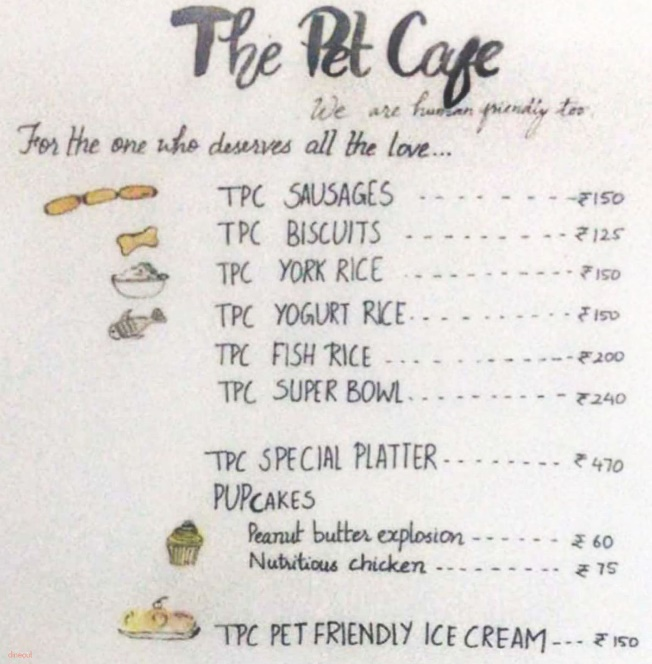 The Pet Cafe
We are human friendly too.
For the one who deserves all the love...
TPC SAUSAGES - - - - - - - - ₹150
TPC BISCUITS - - - - - - - - - ₹125
TPC YORK RICE - - - - - - - - - ₹150
TPC YOGURT RICE - - - - - - - - - ₹150
TPC FISH RICE - - - - - - - - - - ₹200
TPC SUPER BOWL - - - - - - - - - ₹240
TPC SPECIAL PLATTER - - - - - - - - ₹470
PUPCAKES
Peanut butter explosion - - - - - - ₹60
Nutritious chicken - - - - - - - - - ₹75
TPC PET FRIENDLY ICE CREAM - - - ₹150